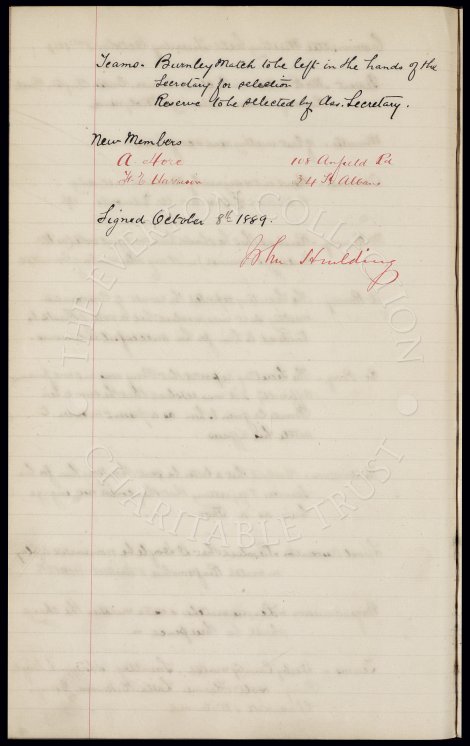 Teams - Burnley Match to be left in the hands of the
Secretary for selection
Reserve to be selected by Ass. Secretary.
New Members
A Hore 108 Anfield Rd
H E Harrison 34 St Albans
Signed October 8th 1889.
John Houlding
THE EVERTON COLLECTION
CHARITABLE TRUST